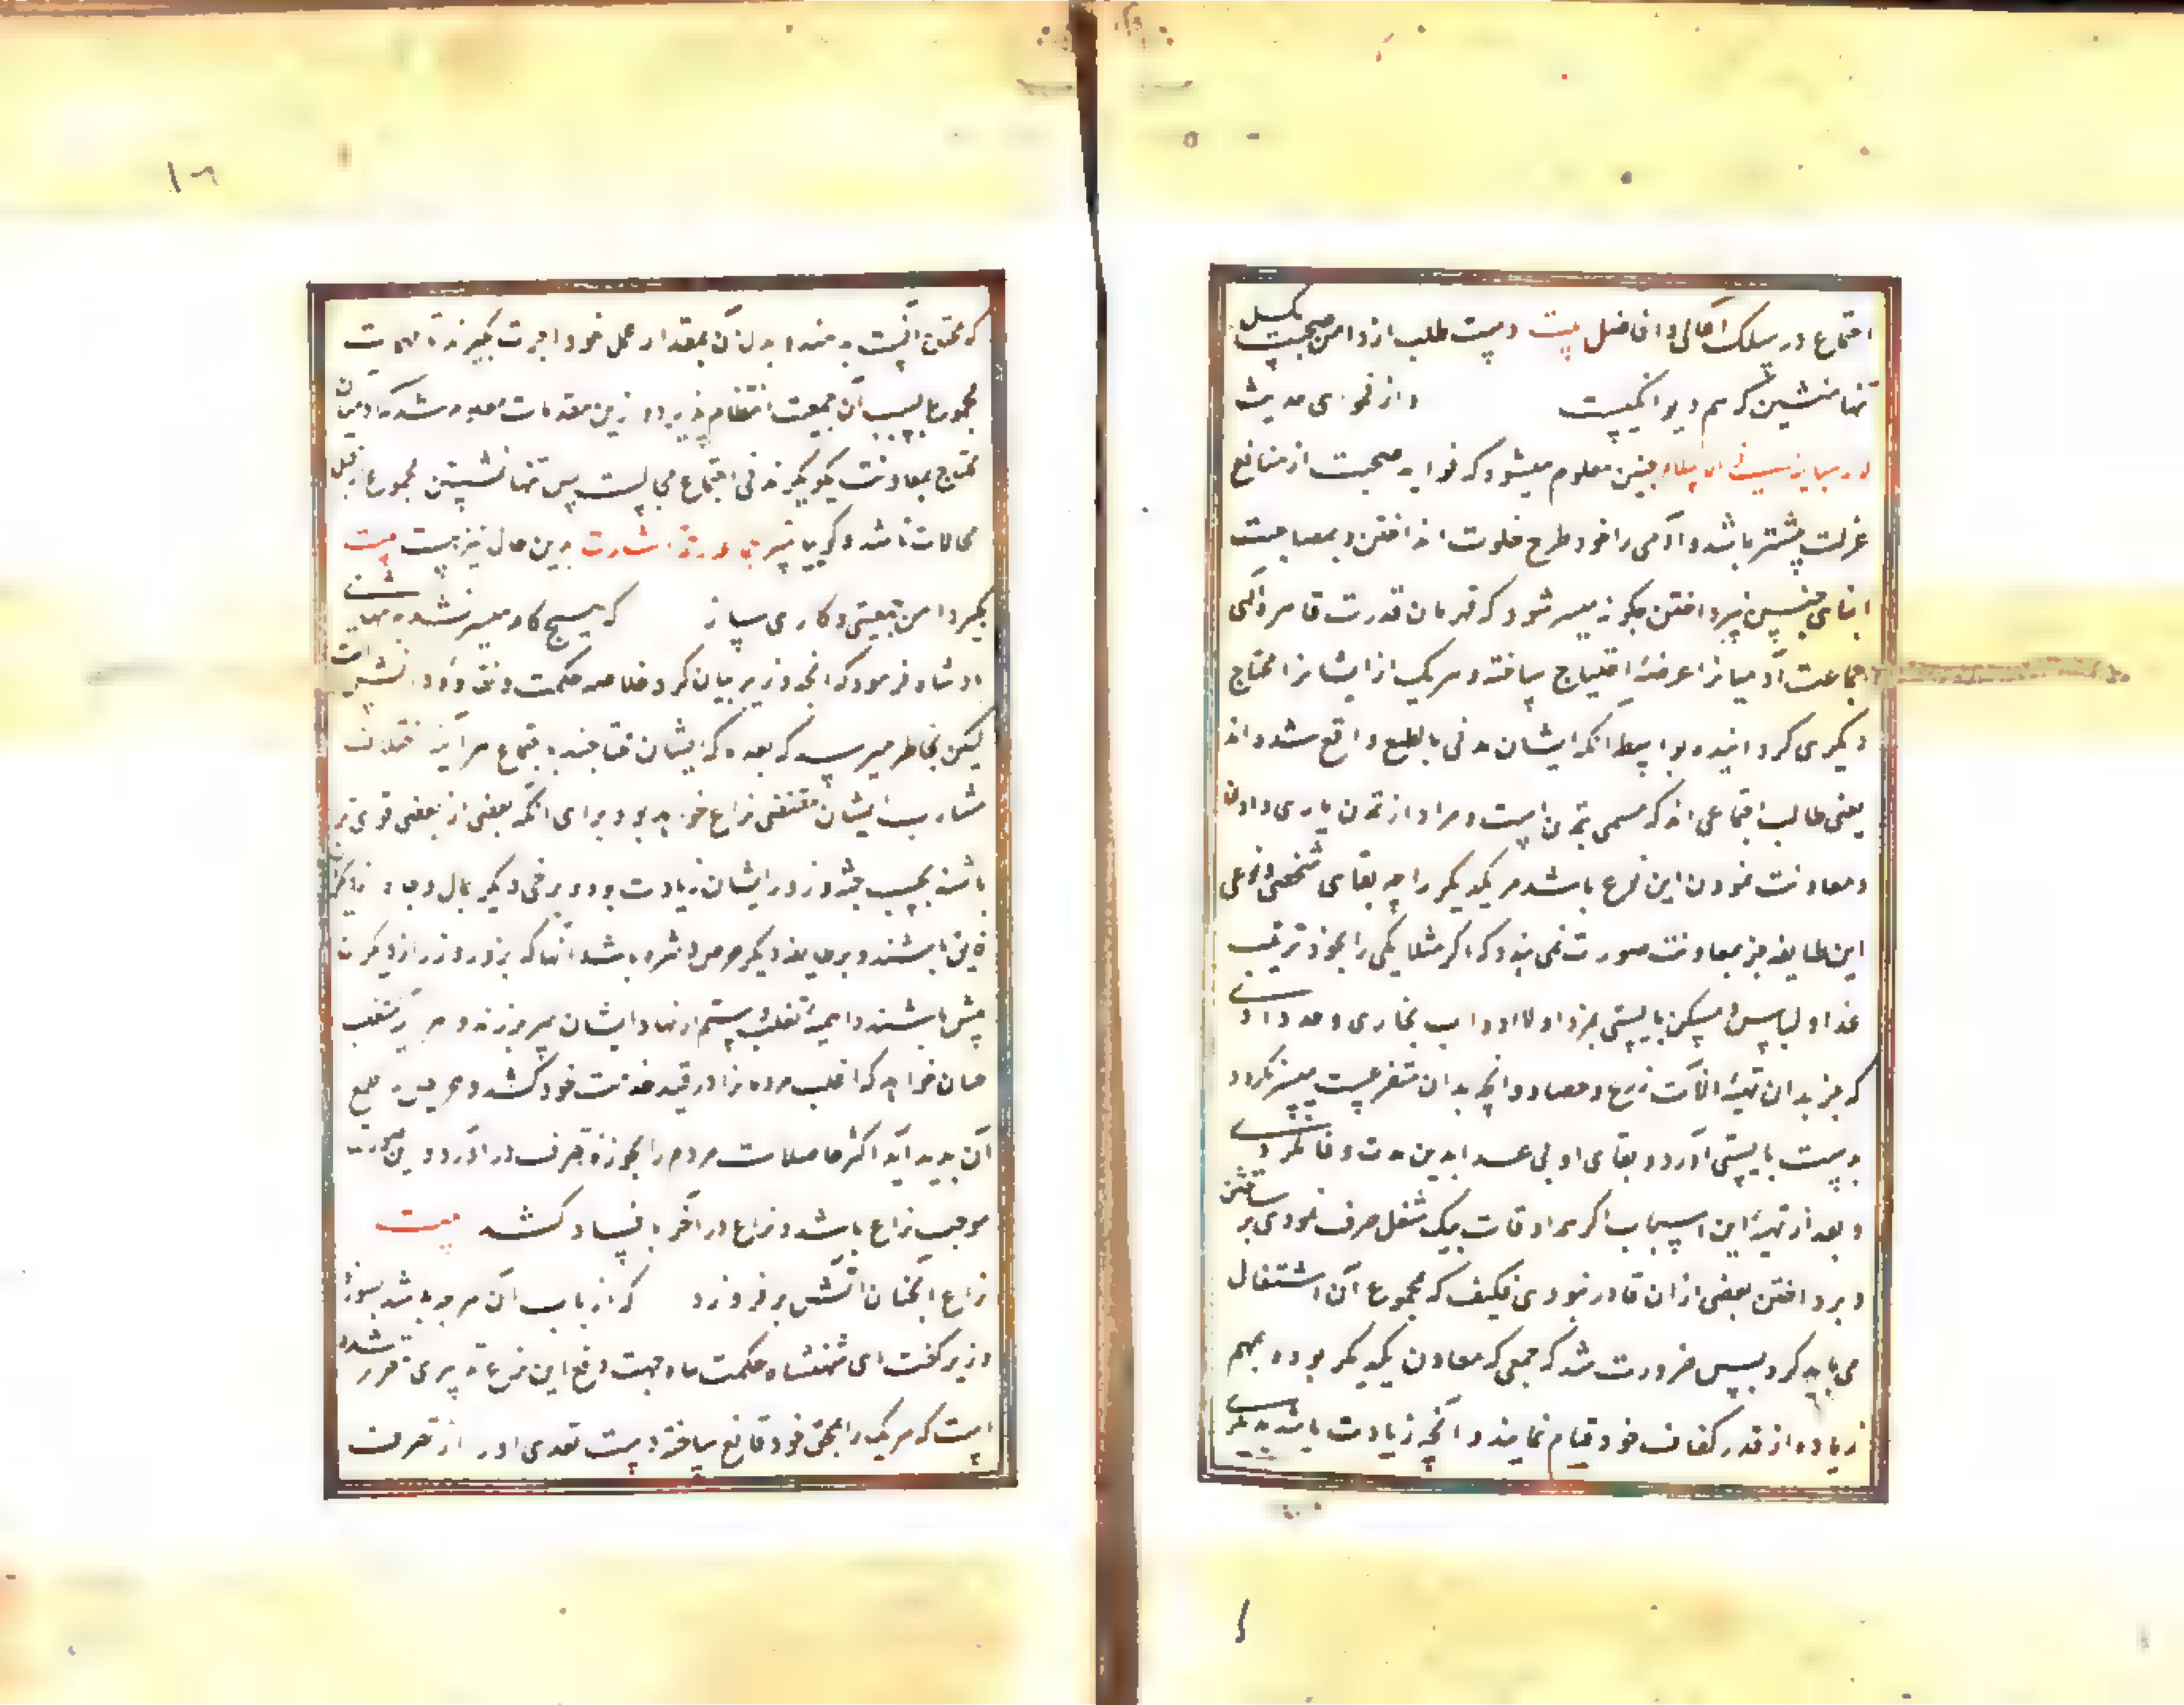 اجتماع در سلک اهالی و افاضل بیت دست طلب از دامن صحبت مکسل
تنها منشین که هم دیوانگیست و از فحوای حدیث
چنین معلوم میشود که فواید صحبت از منافع
عزلت بیشتر باشد و آدمی را خود طرح خلوت انداختن و بمصاحبت
ابنای جنس نپرداختن چگونه میسر شود که قهرمان قدرت قاهره الهی
جماعت آدمیانرا عرضهٔ احتیاج ساخته و هر یک از ایشانرا محتاج
دیگری گردانیده بواسطه آنکه ایشان مدنی بالطبع واقع شده اند
یعنی طالب اجتماعی اند که مسمی بتمدن است و مراد از تمدن یاری دادن
و معاونت نمودن این نوع باشد مر یکدیگر را چه بقای شخصی و نوعی
این طایفه جز بمعاونت صورت نمی بندد که اگر مثلا یکی را بخود ترتیب
غذا و لباس و مسکن بایستی کرد اولا ادوات نجاری و حدادی
که جز بدان تهیهٔ آلات زرع و حصاد و آنچه بدان متفرعست میسر نگردد
بدست بایستی آورد و بقای او بی غذا بدین مدت وفا نکردی
و بعد از تهیهٔ این اسباب اگر همه اوقات بیک شغل صرف نمودی بر ساختن
و پرداختن بعضی از ان قادر نبودی فکیف که بمجموع آن اشتغال
می باید کرد پس ضرورت شد که جمعی که معاون یکدیگر بوده بمهم
زیاده از قدر کفاف خود قیام نمایند و آنچه زیادت باشد بدیگری
که محتاج آنست بدهند و بدل آن بمقدار عمل خود اجرت بگیرند تا مهمات
مجموع بسبب آن جمعیت انتظام پذیرد و ازین مقدمات معلوم شد که آدمیان
محتاج بمعاونت یکدیگرند و بی اجتماع محالست پس تنها نشستن مجموع از قبیل
محالات باشد و اشارت بدین حال نیز هست بیت
بگیر دامن جمعیتی و کاری ساز که هیچ کار میسر نشد به تنهایی
پادشاه فرمود که آنچه وزیر بیان کرد خلاصه حکمت و نقاوهٔ دانش است
لیکن بخاطر میرسد که بعد از انکه ایشان محتاجند باجتماع هر آینه اختلاف
مشارب ایشان مقتضی نزاع خواهد بود برای آنکه بعضی از بعضی قوی تر
باشند بحسب جثه و زور ایشان زیادت بود و برخی دیگر بمال و جاه
فایق باشند و بر طایفه دیگر حرص و شره باشد آنها که بزور و زر از دیگران
بیش باشند داعیهٔ تغلب و ستم از نهاد ایشان سر بر زند و هر آینه متغلب
چنان خواهد که اغلب مردم را در قید خدمت خود کشد و حرص و طمع
آن پدید آید اکثر حاصلات مردم را بحوزهٔ تصرف در آورد و این صورت
موجب نزاع باشد و نزاع در آخر بافساد کشد بیت
نزاع آنچنان آتش برفروزد که از باب آن هر چه باشد بسوزد
وزیر گفت ای شهنشاه حکمت پناه جهت دفع این نزاع تدبیری مقرر شده
است که هر یک را بحق خود قانع ساخته دست تعدی او را از تصرف